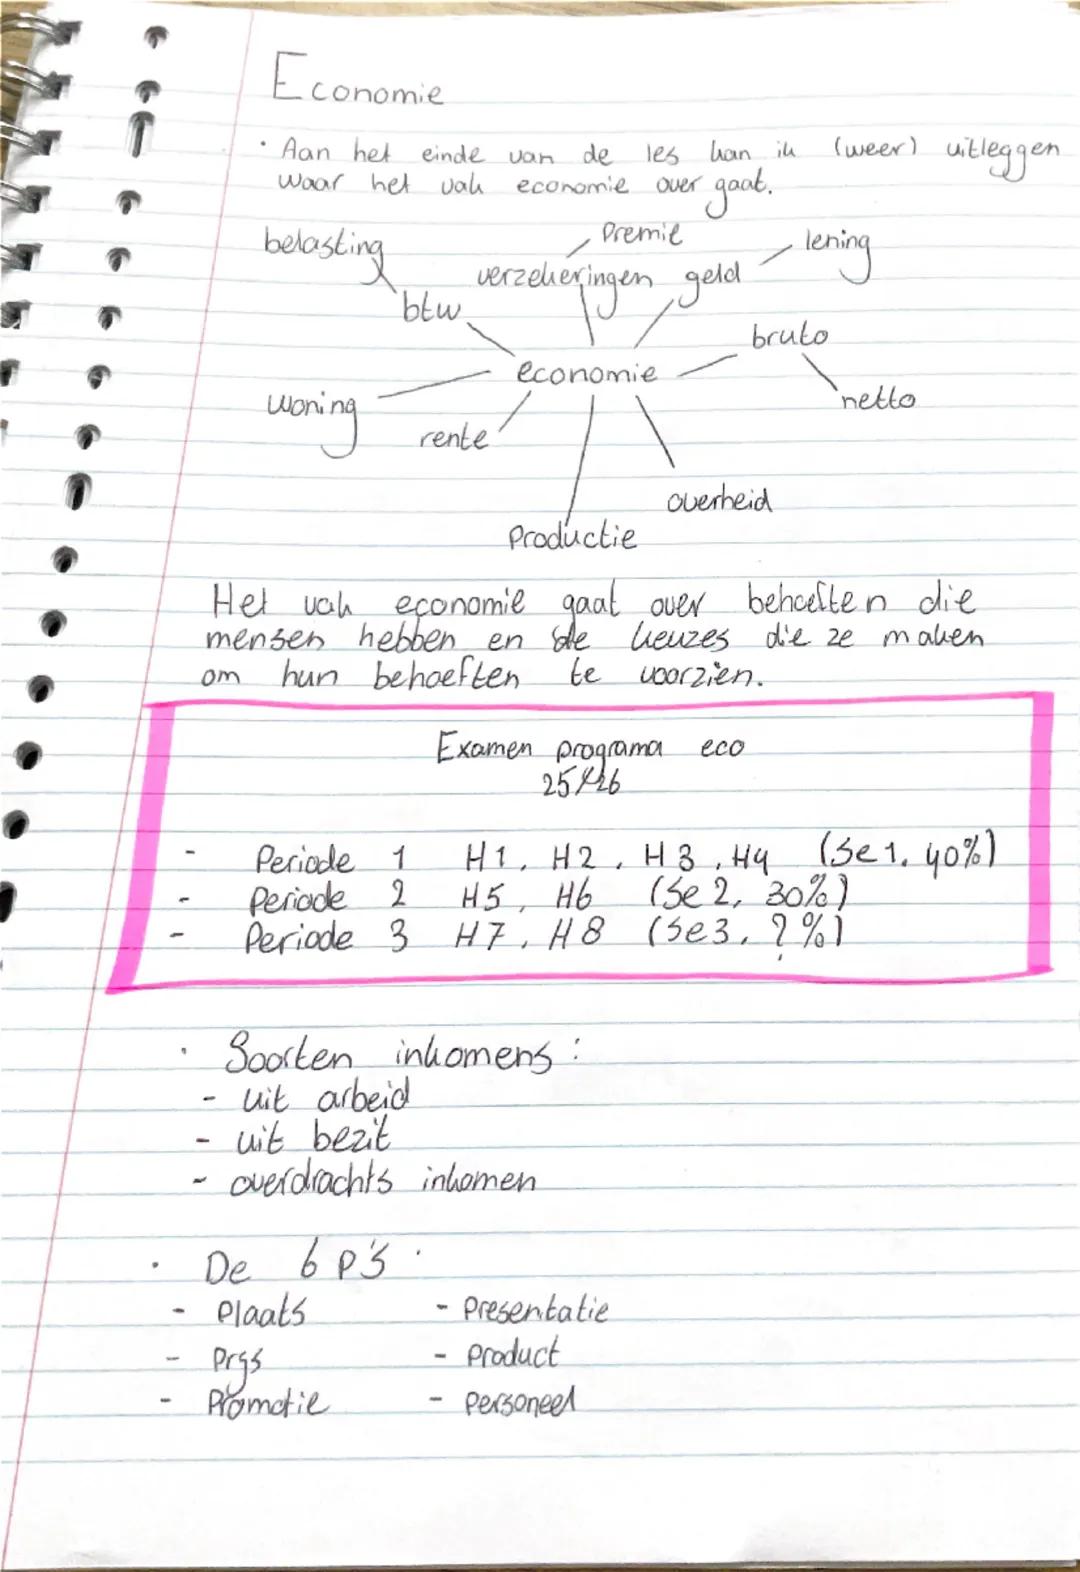 Economie
· Aan het einde van de les kan ik (weer) uitleggen
waar het vak economie over gaat.
belasting
premie
lening
verzekeringen
geld
btw
bruto
economie
woning
netto
rente
overheid
productie
Het vak economie gaat over behoeften die
mensen hebben en de keuzes die ze maken
om hun behoeften te voorzien.
Examen programa eco
25/26
- Periode 1 H1, H2, H3, H4 (Se1, 40%)
- Periode 2 H5, H6 (Se 2, 30%)
- Periode 3 H7, H8 (Se3, ?%)
· Soorten inkomens:
- uit arbeid
- uit bezit
- overdrachts inkomen
· De 6 P's.
- Plaats - Presentatie
- Prijs - Product
- Promotie - Personeel